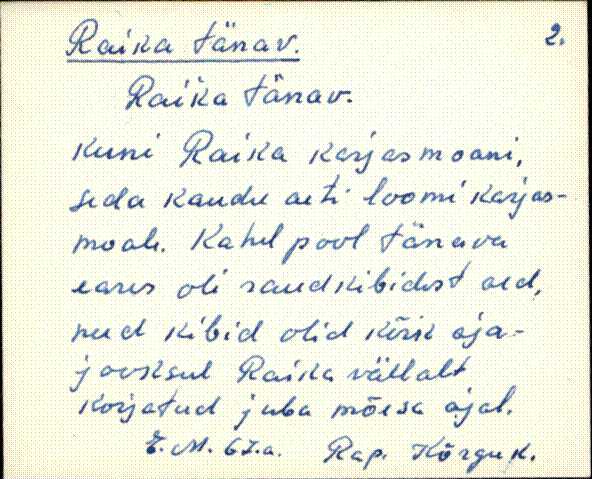 Raika tänav. 2.
Raika tänav.
kuni Raika karjasmoani,
seda kaudu aeti loomi karjas-
moale. Kahel pool tänava
eares oli raudkibidest aed,
need kibid olid kõik aja-
jooksul Raika vällalt
korjatud juba mõisa ajal.
E. M. 67. a. Rap. Kõrguk.